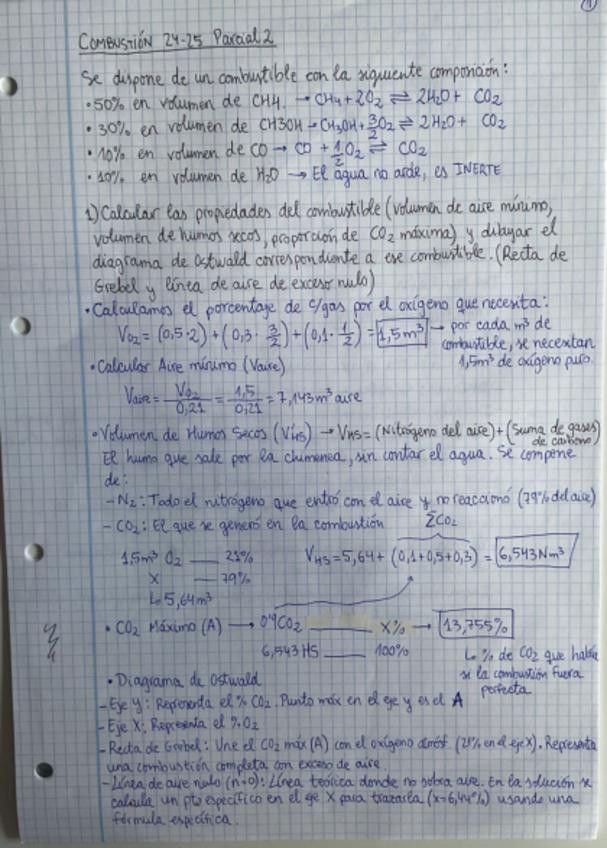 1
COMBUSTIÓN 24-25 Parcial 2
Se dispone de un combustible con la siguiente composición:
• 50% en volumen de CH4. → CH4 + 2O2 ⇌ 2H2O + CO2
• 30% en volumen de CH3OH → CH3OH + 3/2 O2 ⇌ 2H2O + CO2
• 10% en volumen de CO → CO + 1/2 O2 ⇌ CO2
• 10% en volumen de H2O → El agua no arde, es INERTE
1) Calcular las propiedades del combustible (volumen de aire mínimo,
volumen de humos secos, proporción de CO2 máxima) y dibujar el
diagrama de Ostwald correspondiente a ese combustible. (Recta de
Grebel y línea de aire de exceso nulo)
• Calculamos el porcentaje de c/gas por el oxígeno que necesita:
VO2 = (0,5·2) + (0,3· 3/2) + (0,1· 1/2) = 1,5m³ → por cada m³ de
combustible, se necesitan
1,5m³ de oxígeno puro.
• Calcular Aire mínimo (Vaire)
Vaire = VO2/0,21 = 1,5/0,21 = 7,143m³ aire
• Volumen de Humos Secos (VHS) → VHS = (Nitrógeno del aire) + (Suma de gases
de carbono)
El humo que sale por la chimenea, sin contar el agua. Se compone
de:
- N2: Todo el nitrógeno que entró con el aire y no reaccionó (79% del aire)
- CO2: El que se generó en la combustión ΣCO2
1,5m³ O2 — 21% VHS = 5,64 + (0,1+0,5+0,3) = 6,543Nm³
X — 79%
↳ 5,64m³
• CO2 Máximo (A) → 0'9CO2 — X% → 13,755%
6,543 HS — 100% ↳ % de CO2 que habría
si la combustión fuera
perfecta
• Diagrama de Ostwald
- Eje Y: Representa el % CO2. Punto máx en el eje y es el A
- Eje X: Representa el % O2
- Recta de Grebel: Une el CO2 máx (A) con el oxígeno atmósf. (21% en el eje X). Representa
una combustión completa con exceso de aire.
- Línea de aire nulo (n=0): Línea teórica donde no sobra aire. En la solución se
calcula un pto específico en el eje X para trazarla (x=6,44%) usando una
fórmula específica.